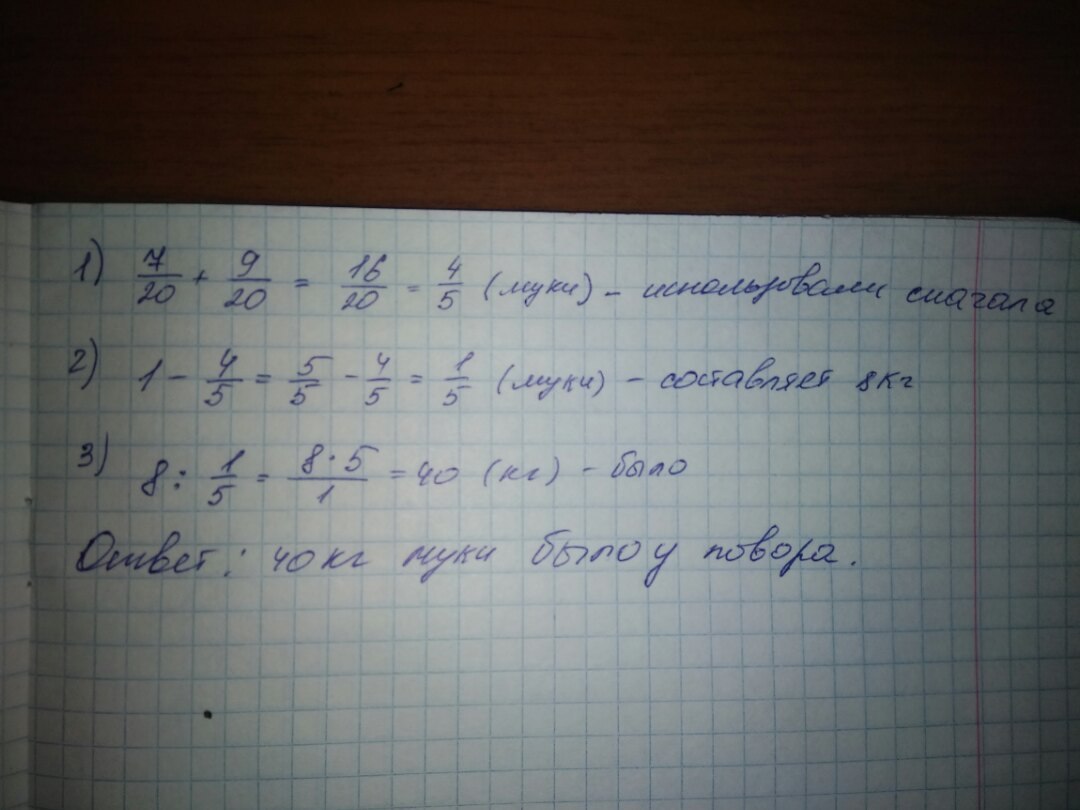 1) 7/20 + 9/20 = 16/20 = 4/5 (муки) - использовали сначала
2) 1 - 4/5 = 5/5 - 4/5 = 1/5 (муки) - составляет 8 кг
3) 8 : 1/5 = 8·5/1 = 40 (кг) - было
Ответ: 40 кг муки было у повора.